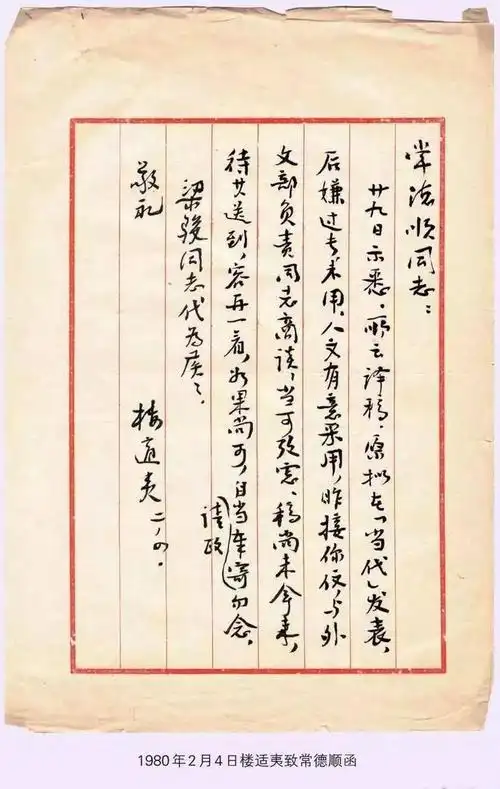 常德顺同志：
廿九日示悉。所云译稿，原拟在「当代」发表，
后嫌过专未用，人文有意采用，昨接你信，与外
文部负责同志商谈，当可考虑。稿尚未拿来，
待其送到，容再一看，如果尚可，自当奉寄勿念。
请政
梁骏同志代为候々。
敬礼
楼适夷 二、四.
1980年2月4日楼适夷致常德顺函